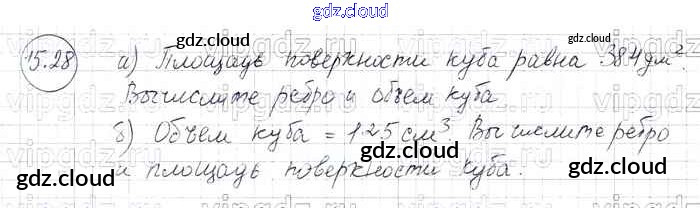 gdz.cloud
15.28 а) Площадь поверхности куба равна 384 дм².
Вычислите ребро и объем куба.
б) Объем куба = 125 см³. Вычислите ребро
и площадь поверхности куба.
gdz.cloud
gdz.cloud
gdz.cloud
gdz.cloud
gdz.cloud
gdz.cloud